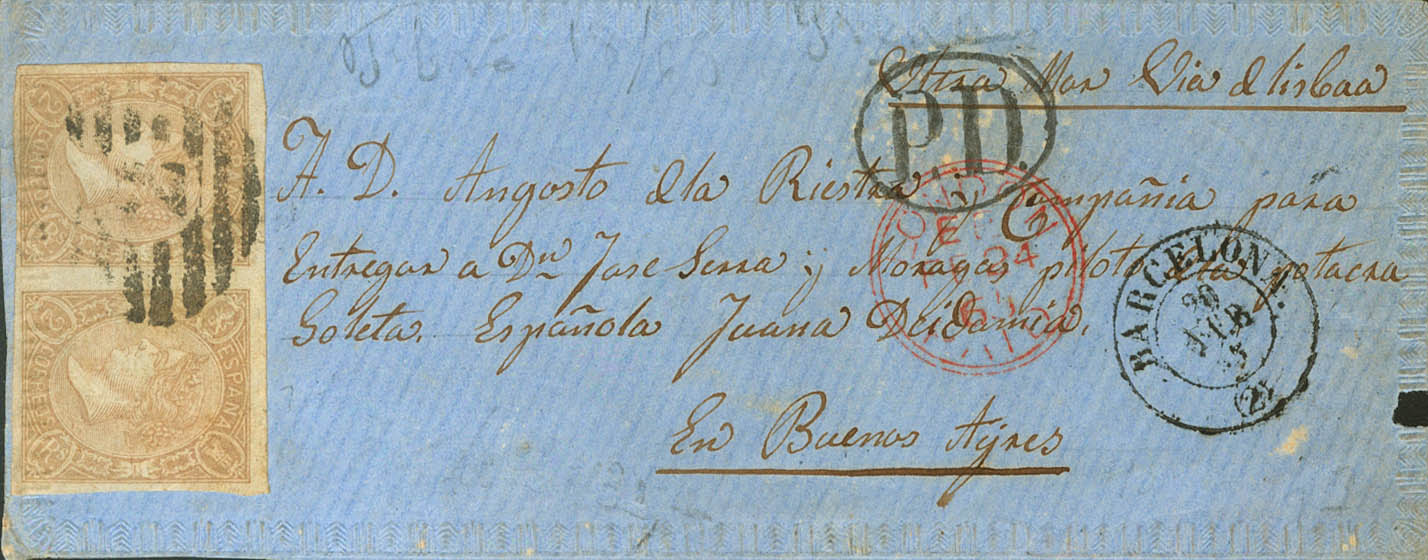 Ultra Mar Via d lisboa
P.D.
A. D. Angosto dla Riestra y Compañia para
Entregar a Dn Jose Serra y Moragas piloto dla potacra
Goleta. Española Juana Deidamia.
En Buenos Ayres
BARCELONA
20
FEB
65
(2)
LONDON
PAID
24
CORREOS
ESPAÑA
CORREOS
ESPAÑA